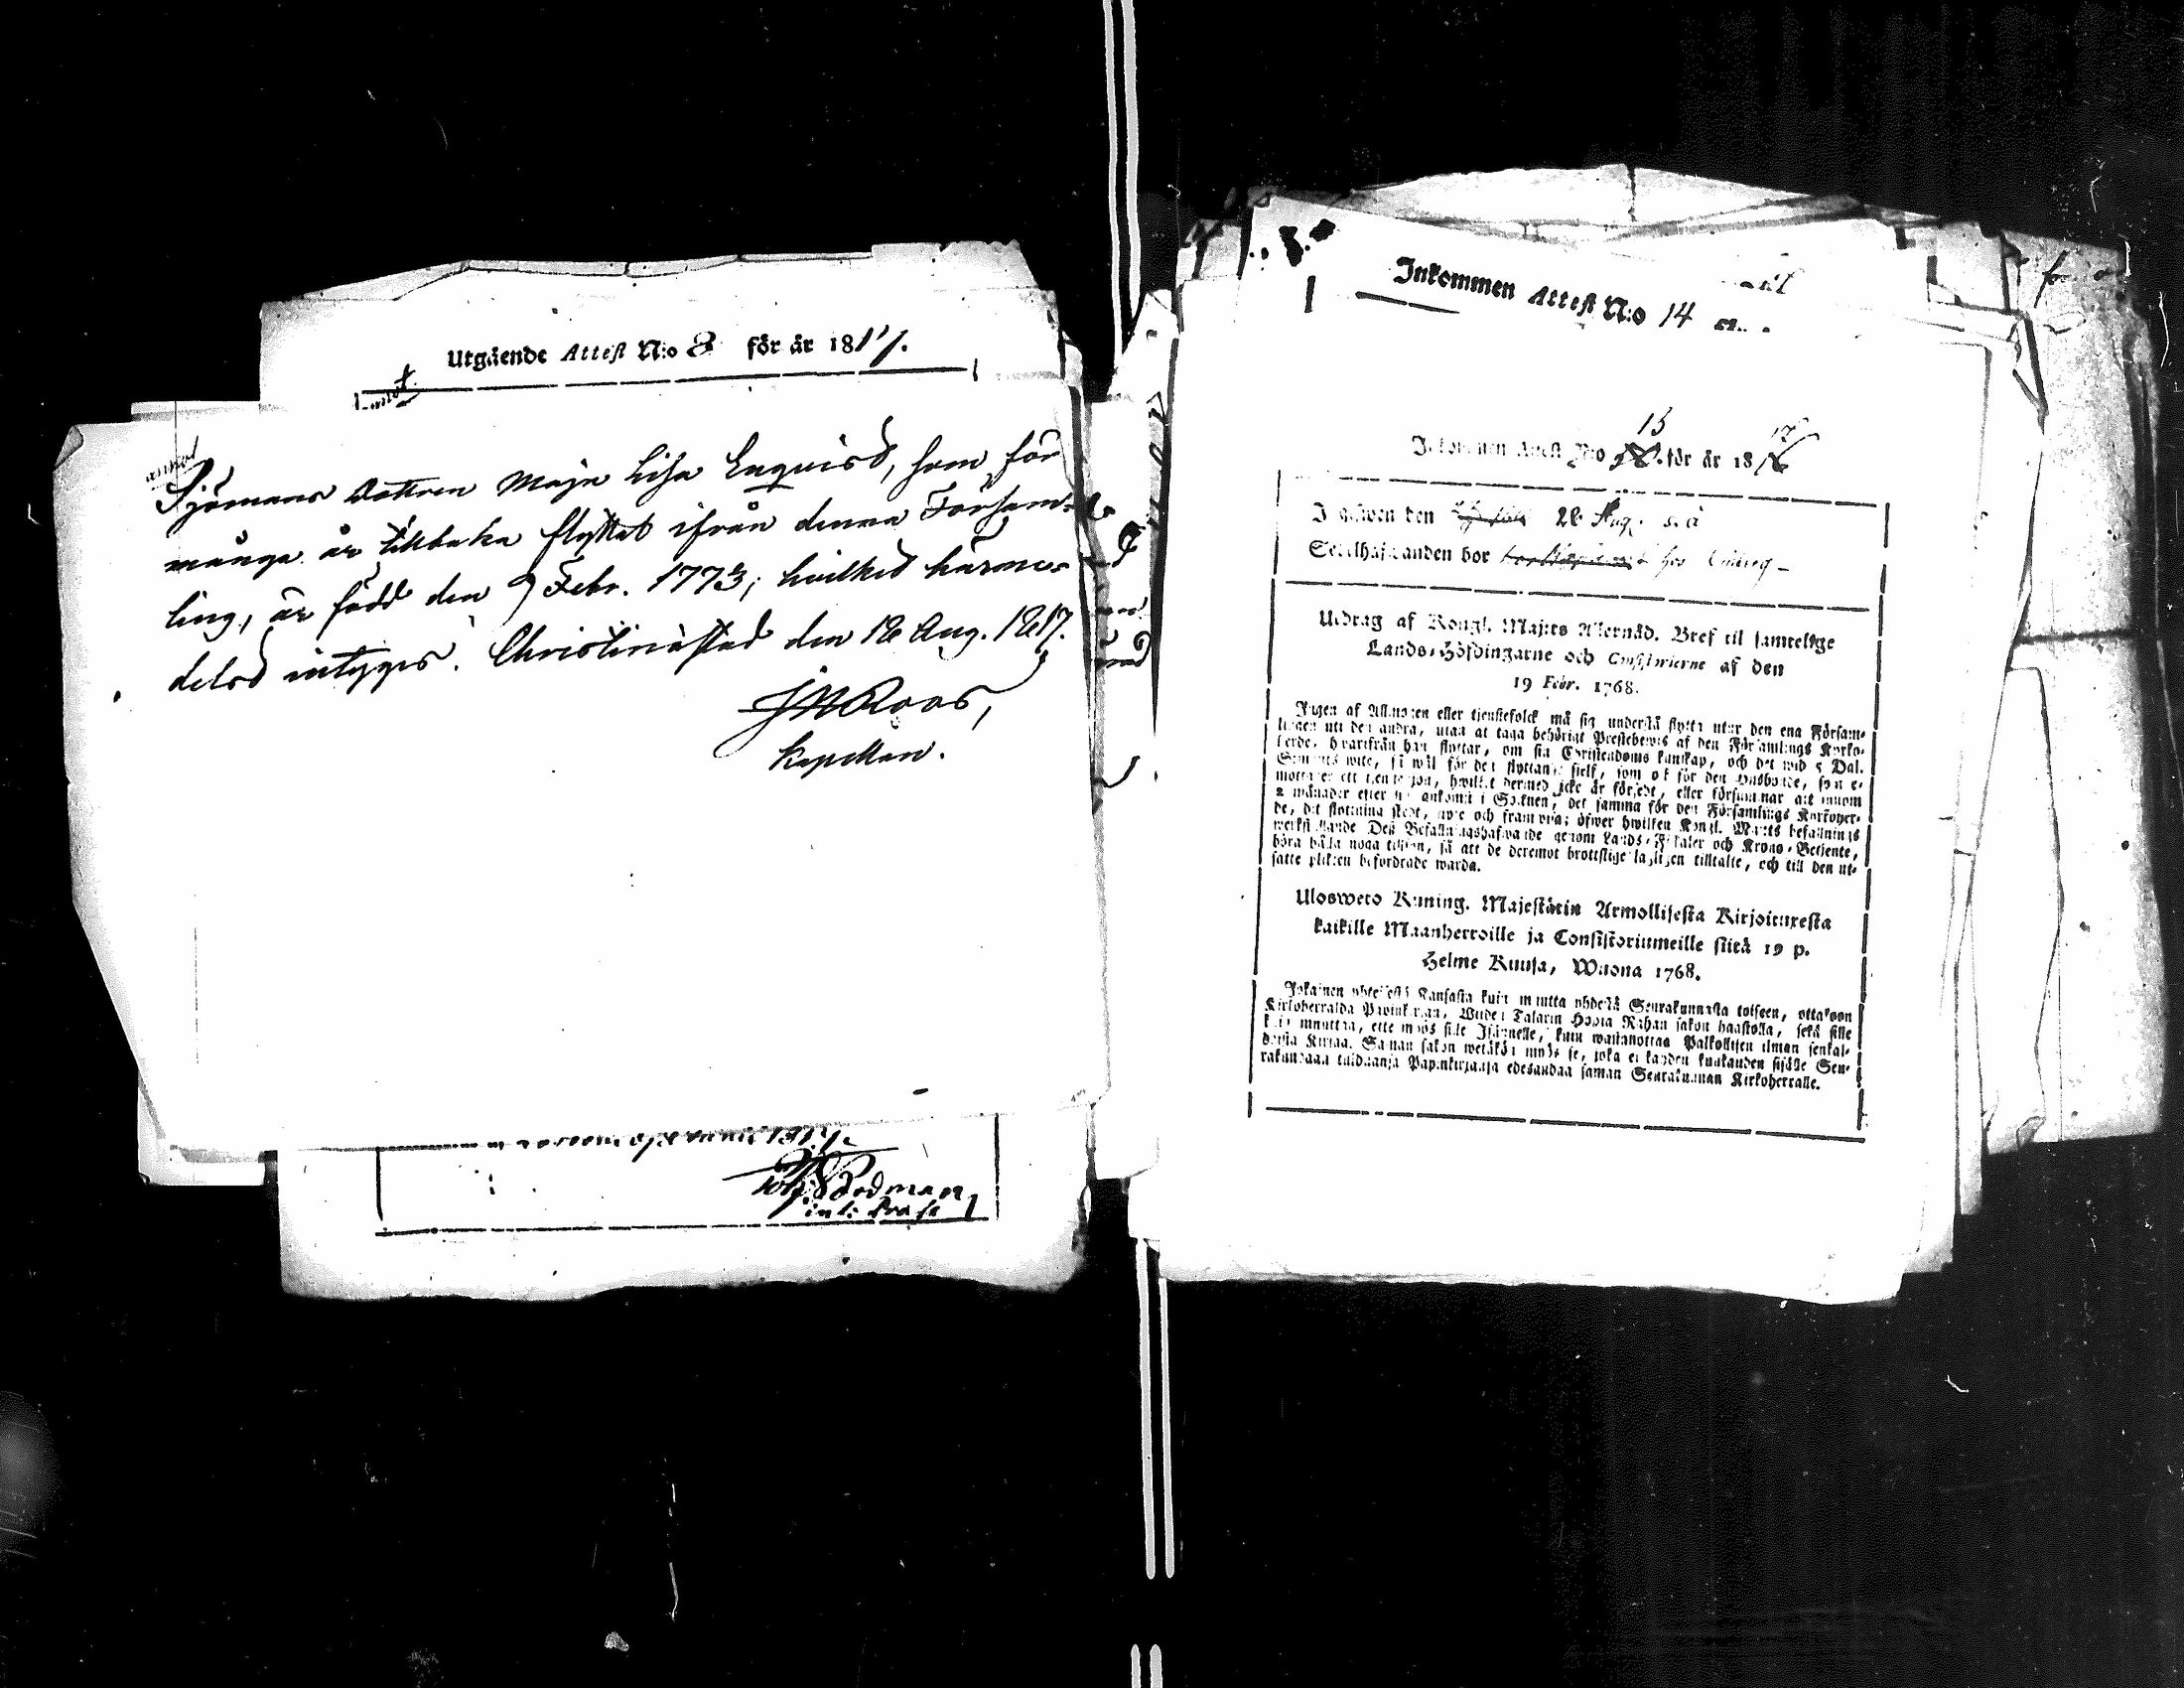 Utgående Attest N:o 8 för år 1817.
Sjömans dottren Maja Lisa Enqvist, som för
många år tillbaka flyttat ifrån denna Försam-
ling, är född den 9 Febr. 1773; hvilket härme-
delst intygas. Christinæstad den 18 Aug. 1817.
JNRoos,
Kapellan.
Bodman
Inkommen Attest N:o 14
Inkommen Attest No 13 för år 18
Ingifwen den 28 Aug.
Sedelhafwanden bor hos
Utdrag af Kongl. Maj:ts Allernåd. Bref til samtelige
Lands-Höfdingarne och Consistorierne af den
19 Febr. 1768.
Ingen af Allmogen eller tjenstefolck må sig understå flytta utur den ena Försam-
lingen uti den andra, utan at taga behörigt Prestebewis af den Församlings Kyrko-
herde, hwarifrån han flyttar, om sin Christendoms kunskap, och det wid 5 Dal.
Smi:nts wite, så wäl för den flyttande sielf, som ock för den Husbonde, som e-
mottager ett tjenstehjon, hwilket dermed icke är försedt, eller försummar att innom
2 månader efter sin ankomst i Soknen, det samma för den Församlings Kyrkoher-
de, dit flyttning skedt, upte och framwisa; öfwer hwilken Kongl. Maj:ts befallnings
werkställande Des Befallningshafwande genom Lands-Fiskaler och Krono-Betjente,
böra hålla noga tillsyn, så att de deremot brottslige lagligen tilltalte, och till den ut-
satte plikten befordrade warda.
Uloswero Kuning. Majestätin Armollisesta Kirjoituxesta
kaikille Maanherroille ja Consistoriumeille siitä 19 p.
Helme Kuusa, Wuona 1768.
Jokainen yhteisestä Kansasta kuin muutta yhdestä Seurakunnasta toiseen, ottakoon
Kirkoherralda Papinkirjan, Wiiden Talarin Hopia Rahan sakon haastolla, sekä sille
kuin muuttaa, ette myös sille Isännelle, kuin wastanottaa Palkollisen ilman senkal-
daista Kirjaa. Saman sakon wetäkön myös se, joka ei kahden kuukauden sisälle Seu-
rakundaan tulduansa Papinkirjaansa edesandaa saman Seurakunnan Kirkoherralle.